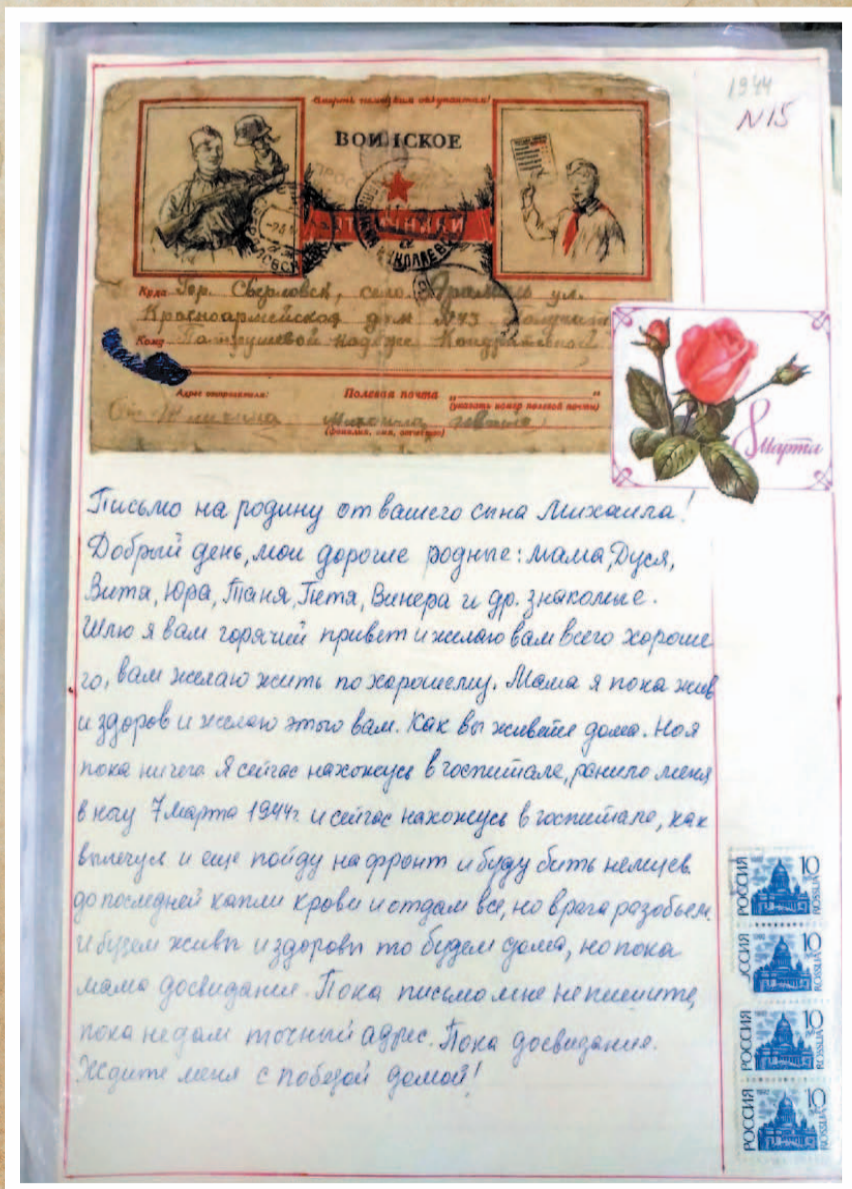 1944
N15
Смерть немецким оккупантам!
ВОИНСКОЕ
Куда Гор. Сверловск, село. Арамиль ул.
Красноармейская дом N43
Кому Патрушевой Надежде Кондратьевной
Адрес отправителя: Полевая почта " "
(указать номер полевой почты)
От Михаила
(фамилия, имя, отчество)
8 Марта
Письмо на родину от вашего сына Михаила!
Добрый день, мои дорогие родные: мама, Дуся,
Витя, Юра, Таня, Петя, Винера и др. знакомые.
Шлю я вам горячий привет и желаю вам всего хороше
го, вам желаю жить по хорошему. Мама я пока жив
и здоров и желаю этого вам. Как вы живете дома. Но я
пока ничего Я сейчас нахожусь в госпитале, ранило меня
в ногу 7 марта 1944г. и сейчас нахожусь в госпитале, как
вылечус и еще пойду на фронт и буду бить немцев
до последней капли крови и отдам все, но врага разобьем.
и будем живы и здоровы то будем дома, но пока
мама досвидания. Пока письмо мне не пишите,
пока недам точный адрес. Пока досвидания.
Ждите меня с победой домой!
РОССИЯ 10 ROSSIJA
РОССИЯ 10 ROSSIJA
РОССИЯ 10 ROSSIJA
РОССИЯ 10 ROSSIJA